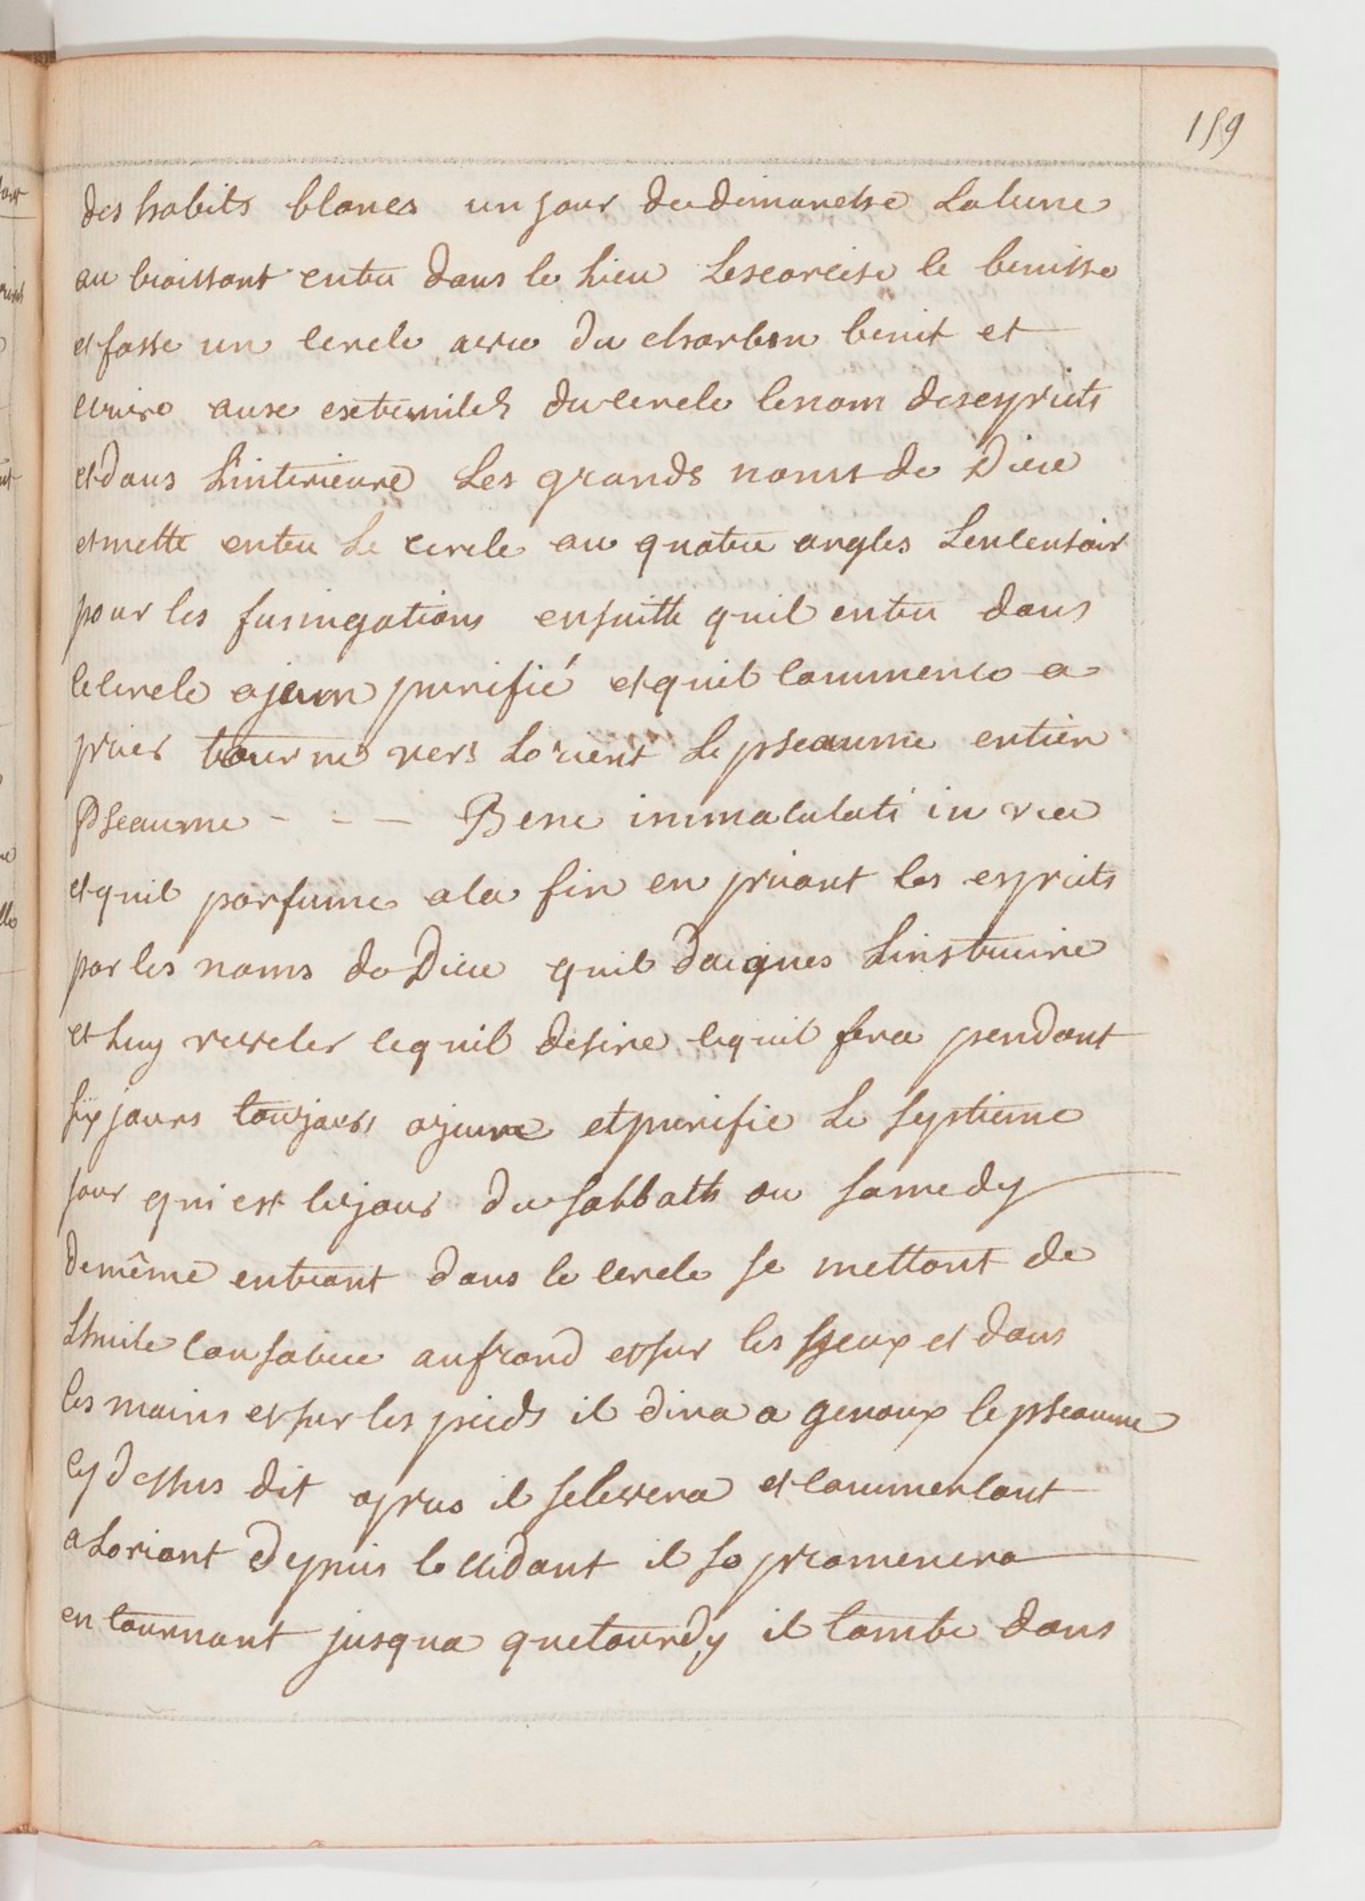 159
des habits blancs un jour de dimanche La lune
au croissant entre dans le lieu Lexorcise le benisse
et fasse un cercle avec du charbon benit et
ecrive aux extremitez du cercle lenom des esprits
et dans Linterieure Les grands noms de Dieu
et mette entre Le cercle au quatre angles Lencensoir
pour les fumigations ensuitte quil entre dans
le cercle ajeun purifié et quil commence a
prier tourné vers Lorient Le pseaume entier
Pseaume - - - Beati immaculati in via
et quil parfume a la fin en priant les esprits
par les noms de Dieu quil daignes Linstruire
et Luy reveler ce quil desire ce quil fera pendant
six jours toujours ajeune et purifie Le septieme
jour qui est le jour du sabbath ou samedy
de même entrant dans le cercle se mettant de
Lhuile consacree au frond et sur les yeux et dans
les mains et sur les pieds il dira a genoux le pseaume
cy dessus dit apres il se levera et commencant
a Loriant depuis loccidant il se promenera
en tournant jusqua quetourdy il tombe dans